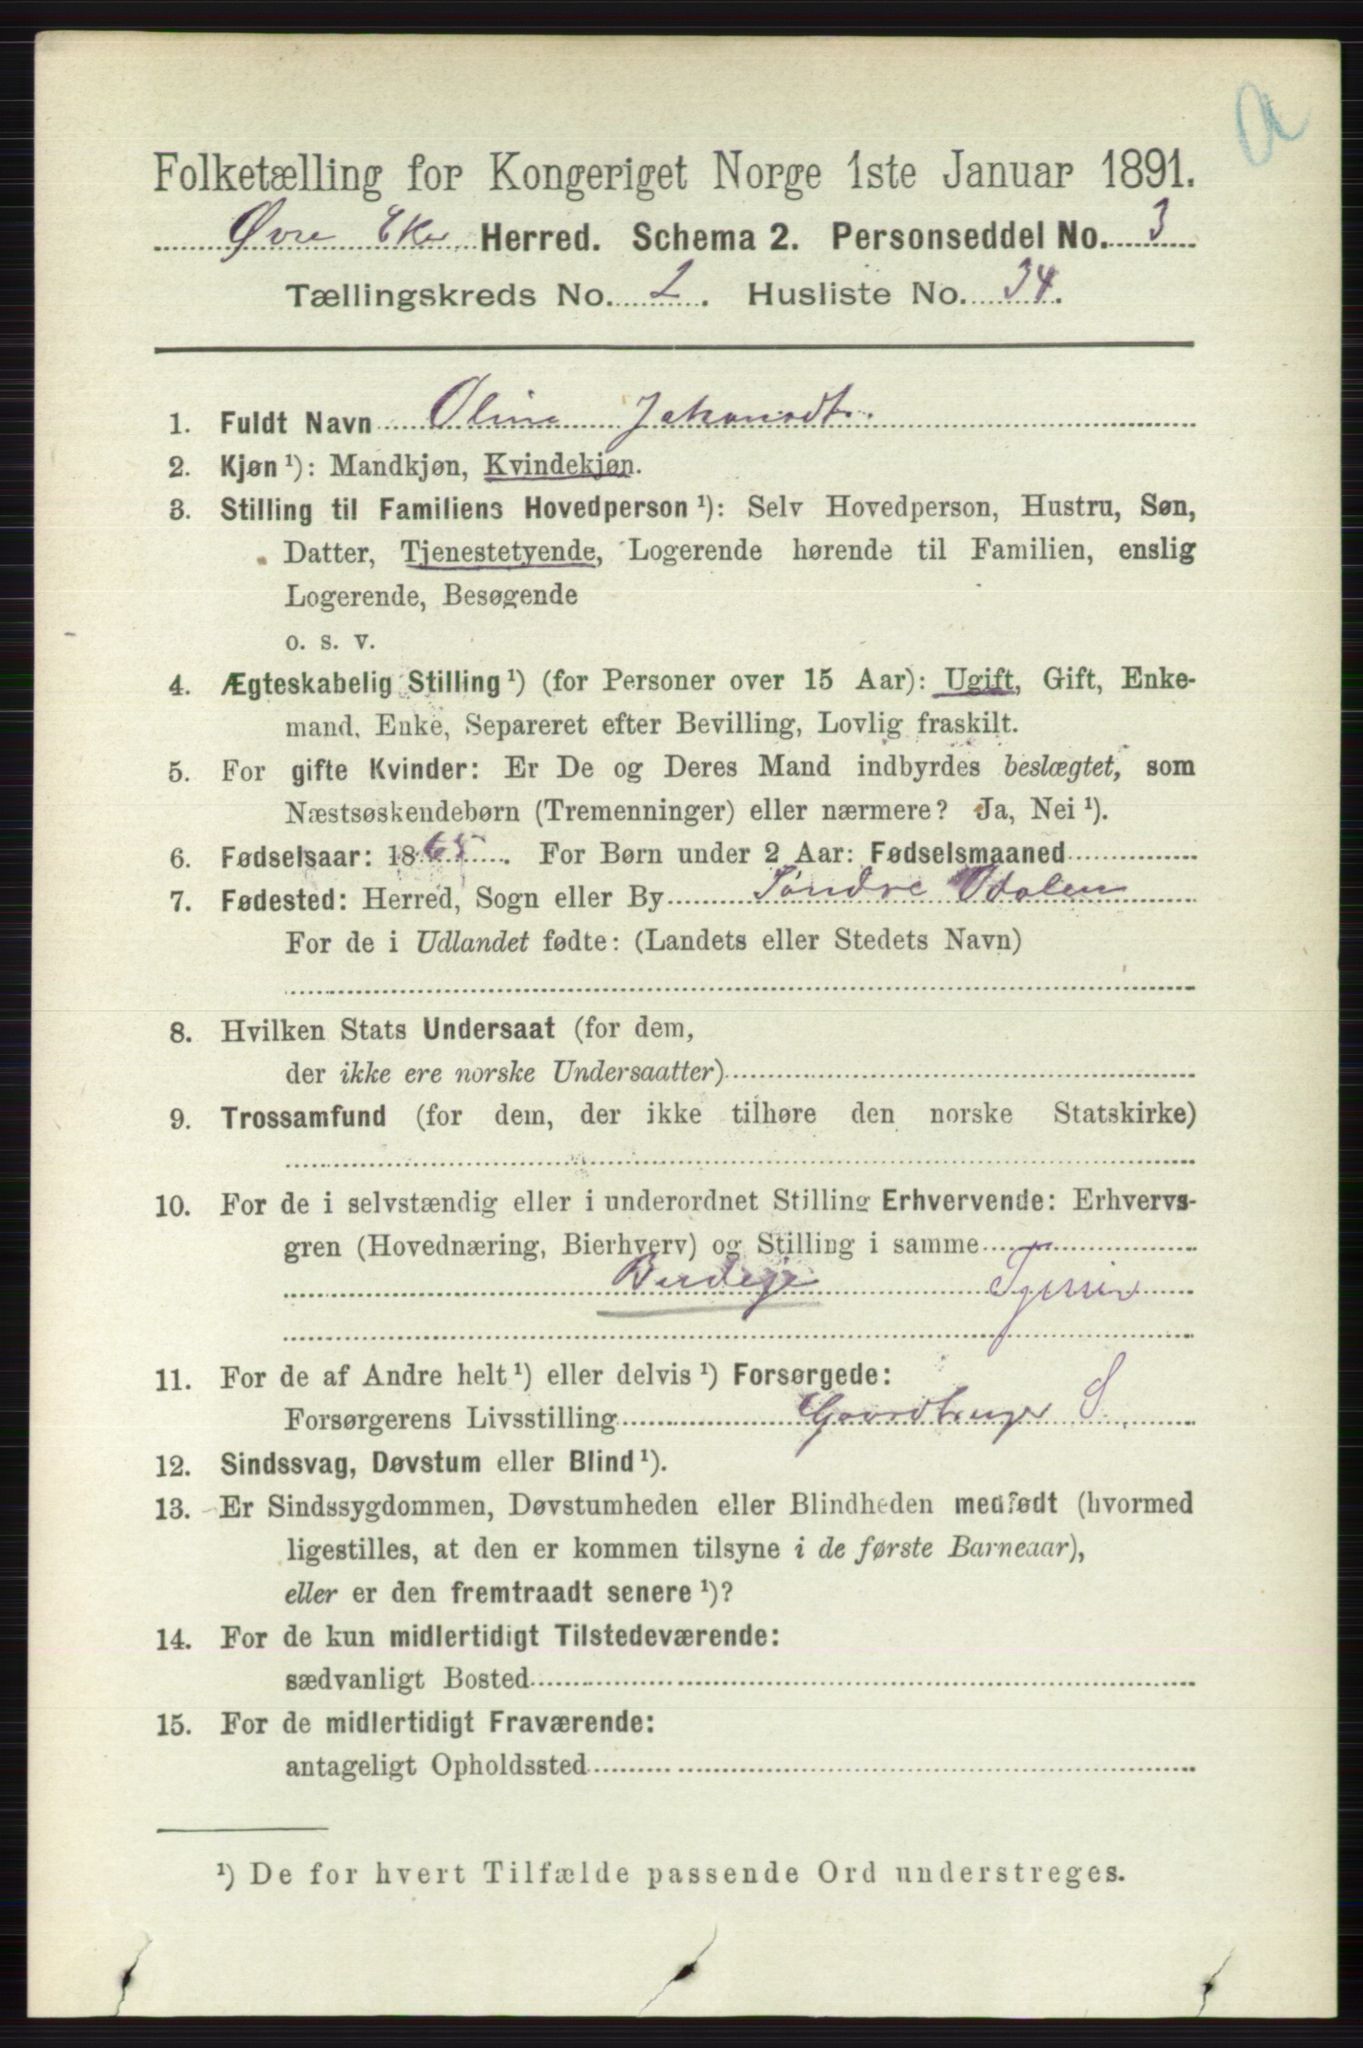 a
Folketælling for Kongeriget Norge 1ste Januar 1891.
Øvre Eker Herred. Schema 2. Personseddel No. 3
Tællingskreds No. 2. Husliste No. 34.
1. Fuldt Navn Oline Johansdt.
2. Kjøn ¹): Mandkjøn, Kvindekjøn.
3. Stilling til Familiens Hovedperson ¹): Selv Hovedperson, Hustru, Søn,
Datter, Tjenestetyende, Logerende hørende til Familien, enslig
Logerende, Besøgende
o. s. v.
4. Ægteskabelig Stilling ¹) (for Personer over 15 Aar): Ugift, Gift, Enke-
mand, Enke, Separeret efter Bevilling, Lovlig fraskilt.
5. For gifte Kvinder: Er De og Deres Mand indbyrdes beslægtet, som
Næstsøskendebørn (Tremenninger) eller nærmere? Ja, Nei ¹).
6. Fødselsaar: 1865. For Børn under 2 Aar: Fødselsmaaned
7. Fødested: Herred, Sogn eller By Søndre Odalen
For de i Udlandet fødte: (Landets eller Stedets Navn)
8. Hvilken Stats Undersaat (for dem,
der ikke ere norske Undersaatter)
9. Trossamfund (for dem, der ikke tilhøre den norske Statskirke)
10. For de i selvstændig eller i underordnet Stilling Erhvervende: Erhvervs-
gren (Hovednæring, Bierhverv) og Stilling i samme
Budeje
11. For de af Andre helt ¹) eller delvis ¹) Forsørgede:
Forsørgerens Livsstilling Gaardbruger S.
12. Sindssvag, Døvstum eller Blind ¹).
13. Er Sindssygdommen, Døvstumheden eller Blindheden medfødt (hvormed
ligestilles, at den er kommen tilsyne i de første Barneaar),
eller er den fremtraadt senere ¹)?
14. For de kun midlertidigt Tilstedeværende:
sædvanligt Bosted
15. For de midlertidigt Fraværende:
antageligt Opholdssted
¹) De for hvert Tilfælde passende Ord understreges.